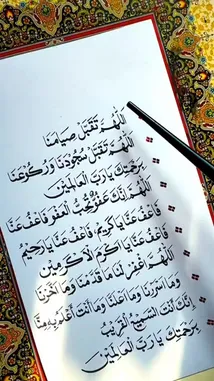 اللهم تقبل صيامنا
اللهم تقبل سجودنا وركوعنا
برحمتك يا رب العالمين
اللهم إنك عفو تحب العفو فاعف عنا
فاعف عنا يا كريم فاعف عنا يا رحيم
فاعف عنا يا أكرم الأكرمين
اللهم اغفر لنا ما قدمنا وما أخرنا
وما أسررنا وما أعلنا وما أنت أعلم به منا
إنك أنت السميع القريب
برحمتك يا رب العالمين